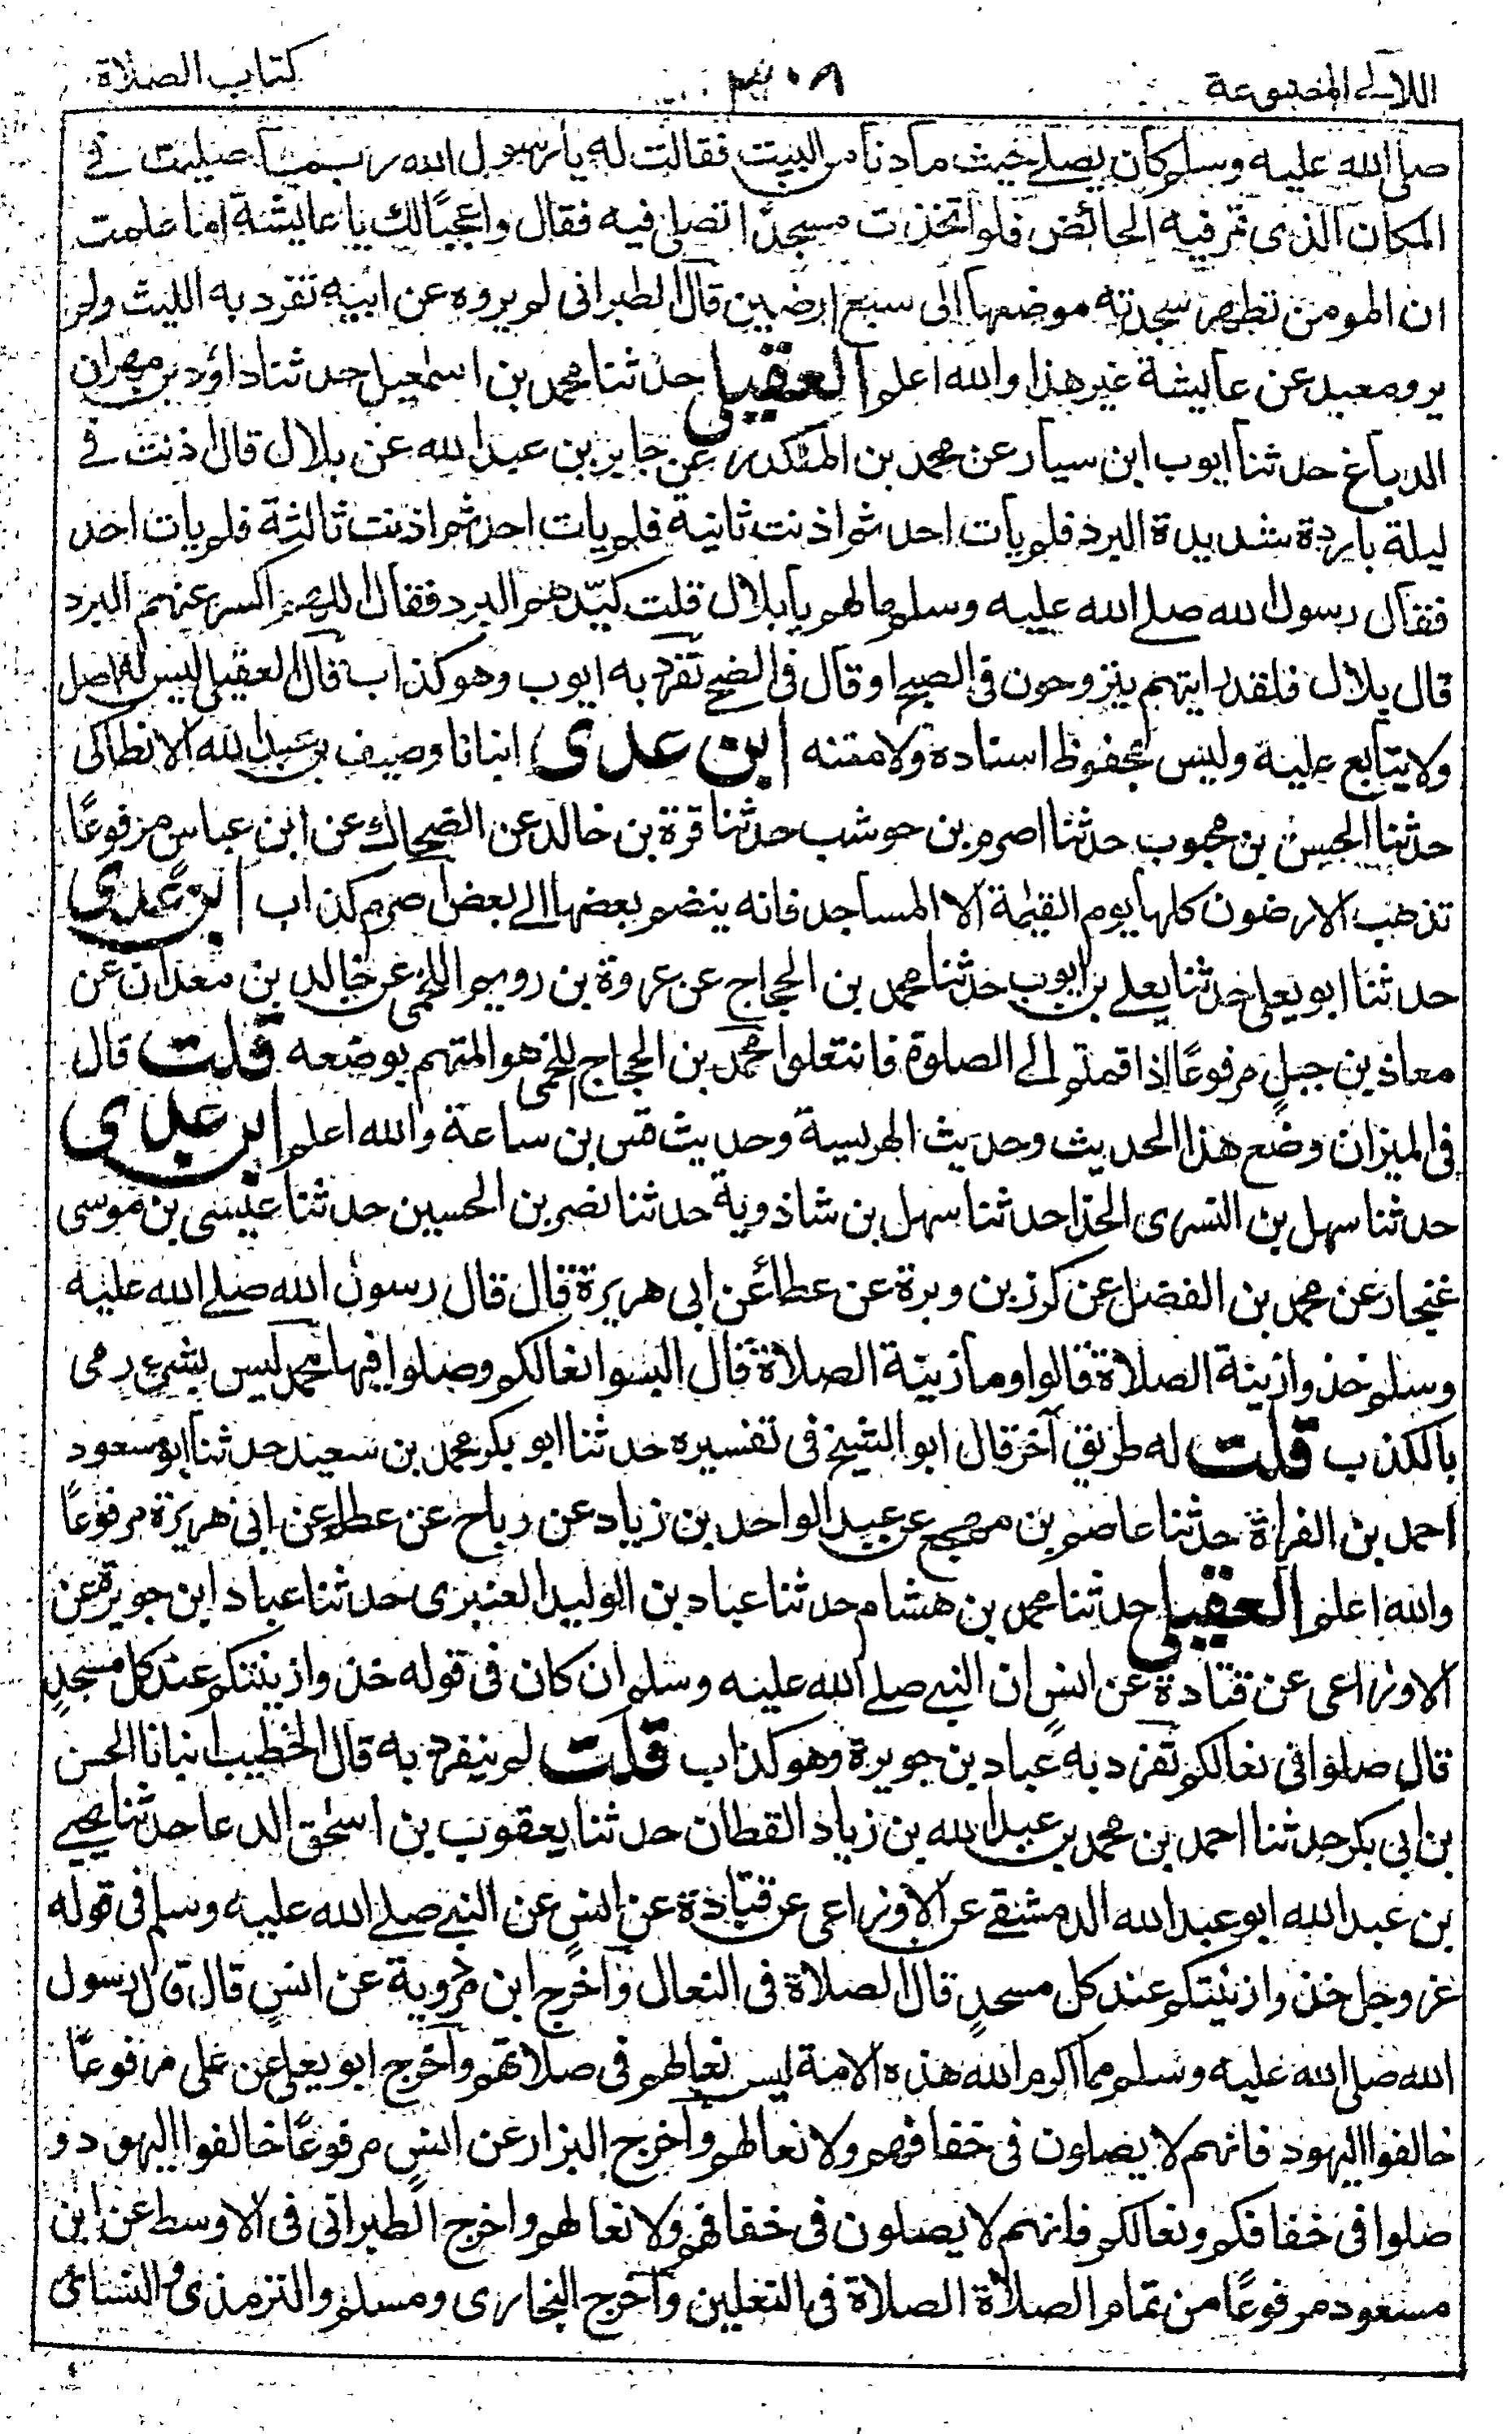 اللآلي المصنوعة
٣٠٨
كتاب الصلاة
صلى الله عليه وسلم كان يصلي حيث ما دنا من البيت فقالت له يا رسول الله ربما صليت في
المكان الذي تمر فيه الحائض فلو اتخذت مسجدًا تصلي فيه فقال واعجبًا لك يا عايشة اما علمت
ان المومن تطهر سجدته موضعها الى سبع ارضين قال الطبراني لم يروه عن ابيه تفرد به الليث ولم
يرو معبد عن عايشة غير هذا والله اعلم العقيلي حدثنا محمد بن اسمعيل حدثنا داؤد بن مهران
الدباغ حدثنا ايوب ابن سيار عن محمد بن المنكدر عن جابر بن عبد الله عن بلال قال اذنت في
ليلة باردة شديدة البرد فلم يات احد ثم اذنت ثانية فلم يات احد ثم اذنت ثالثة فلم يات احد
فقال رسول الله صلى الله عليه وسلم ما لهم يا بلال قلت كبّدهم البرد فقال اللهم اكسر عنهم البرد
قال بلال فلقد رايتهم يتروحون في الصبح او قال في الضحى تفرد به ايوب وهو كذاب قال العقيلي ليس له اصل
ولا يتابع عليه وليس بمحفوظ اسناده ولا متنه ابن عدي انبانا وصيف بن عبد الله الانطاكي
حدثنا الحسن بن محبوب حدثنا اصرم بن حوشب حدثنا قرة بن خالد عن الضحاك عن ابن عباس مرفوعًا
تذهب الارضون كلها يوم القيمة الا المساجد فانه ينضم بعضها الى بعض اصرم كذاب ابن عدي
حدثنا ابو يعلى حدثنا يعلى بن ايوب حدثنا محمد بن الحجاج عن عروة بن رويم اللخمي عن خالد بن معدان عن
معاذ بن جبل مرفوعًا اذا قمتم الى الصلوة فانتعلوا محمد بن الحجاج اللخمي هو المتهم بوضعه قلت قال
في الميزان وضع هذا الحديث وحديث الهريسة وحديث قس بن ساعة والله اعلم ابن عدي
حدثنا سهل بن السري الحذا حدثنا سهل بن شاذوية حدثنا نصر بن الحسين حدثنا عيسى بن موسى
غنجار عن محمد بن الفضل عن كرز بن وبرة عن عطائ عن ابي هريرة قال قال رسول الله صلى الله عليه
وسلم خذوا زينة الصلاة قالوا وما زينة الصلاة قال البسوا نعالكم وصلوا فيها محمد ليس بشيء رمى
بالكذب قلت له طريق آخر قال ابو الشيخ في تفسيره حدثنا ابو بكر محمد بن سعيد حدثنا ابو مسعود
احمد بن الفراة حدثنا عاصم بن مهجع عن عبد الواحد بن زياد عن رباح عن عطاء عن ابي هريرة مرفوعًا
والله اعلم العقيلي حدثنا محمد بن هشام حدثنا عباد بن الوليد العنبزى حدثنا عباد ابن جويرة عن
الاوزاعى عن قتادة عن انس ان النبي صلى الله عليه وسلم ان كان فى قوله خذوا زينتكم عند كل مسجد
قال صلوا فى نعالكم تفرد به عباد بن جويرة وهو كذاب قلت لم ينفرد به قال الخطيب انبانا الحسن
بن ابى بكر حدثنا احمد بن محمد بن عبد الله بن زياد القطان حدثنا يعقوب بن اسحق الدعا حدثنا يحيى
بن عبد الله ابو عبد الله الدمشقي عن الاوزاعى عن قتادة عن انس عن النبي صلى الله عليه وسلم فى قوله
عز وجل خذوا زينتكم عند كل مسجد قال الصلاة فى النعال وآخرج ابن مردوية عن انس قال قال رسول
الله صلى الله عليه وسلم مما اكرم الله هذه الامة لبس نعالهم فى صلاتهم وآخرج ابو يعلى عن على مرفوعًا
خالفوا اليهود فانهم لا يصلون فى خفافهم ولا نعالهم وآخرج البزار عن انس مرفوعًا خالفوا اليهود و
صلوا فى خفافكم ونعالكم فانهم لا يصلون فى خفافهم ولا نعالهم واخرج الطبرانى فى الاوسط عن ابن
مسعود مرفوعًا من تمام الصلاة الصلاة فى النعلين وآخرج البخارى ومسلم والترمذى والنسائى